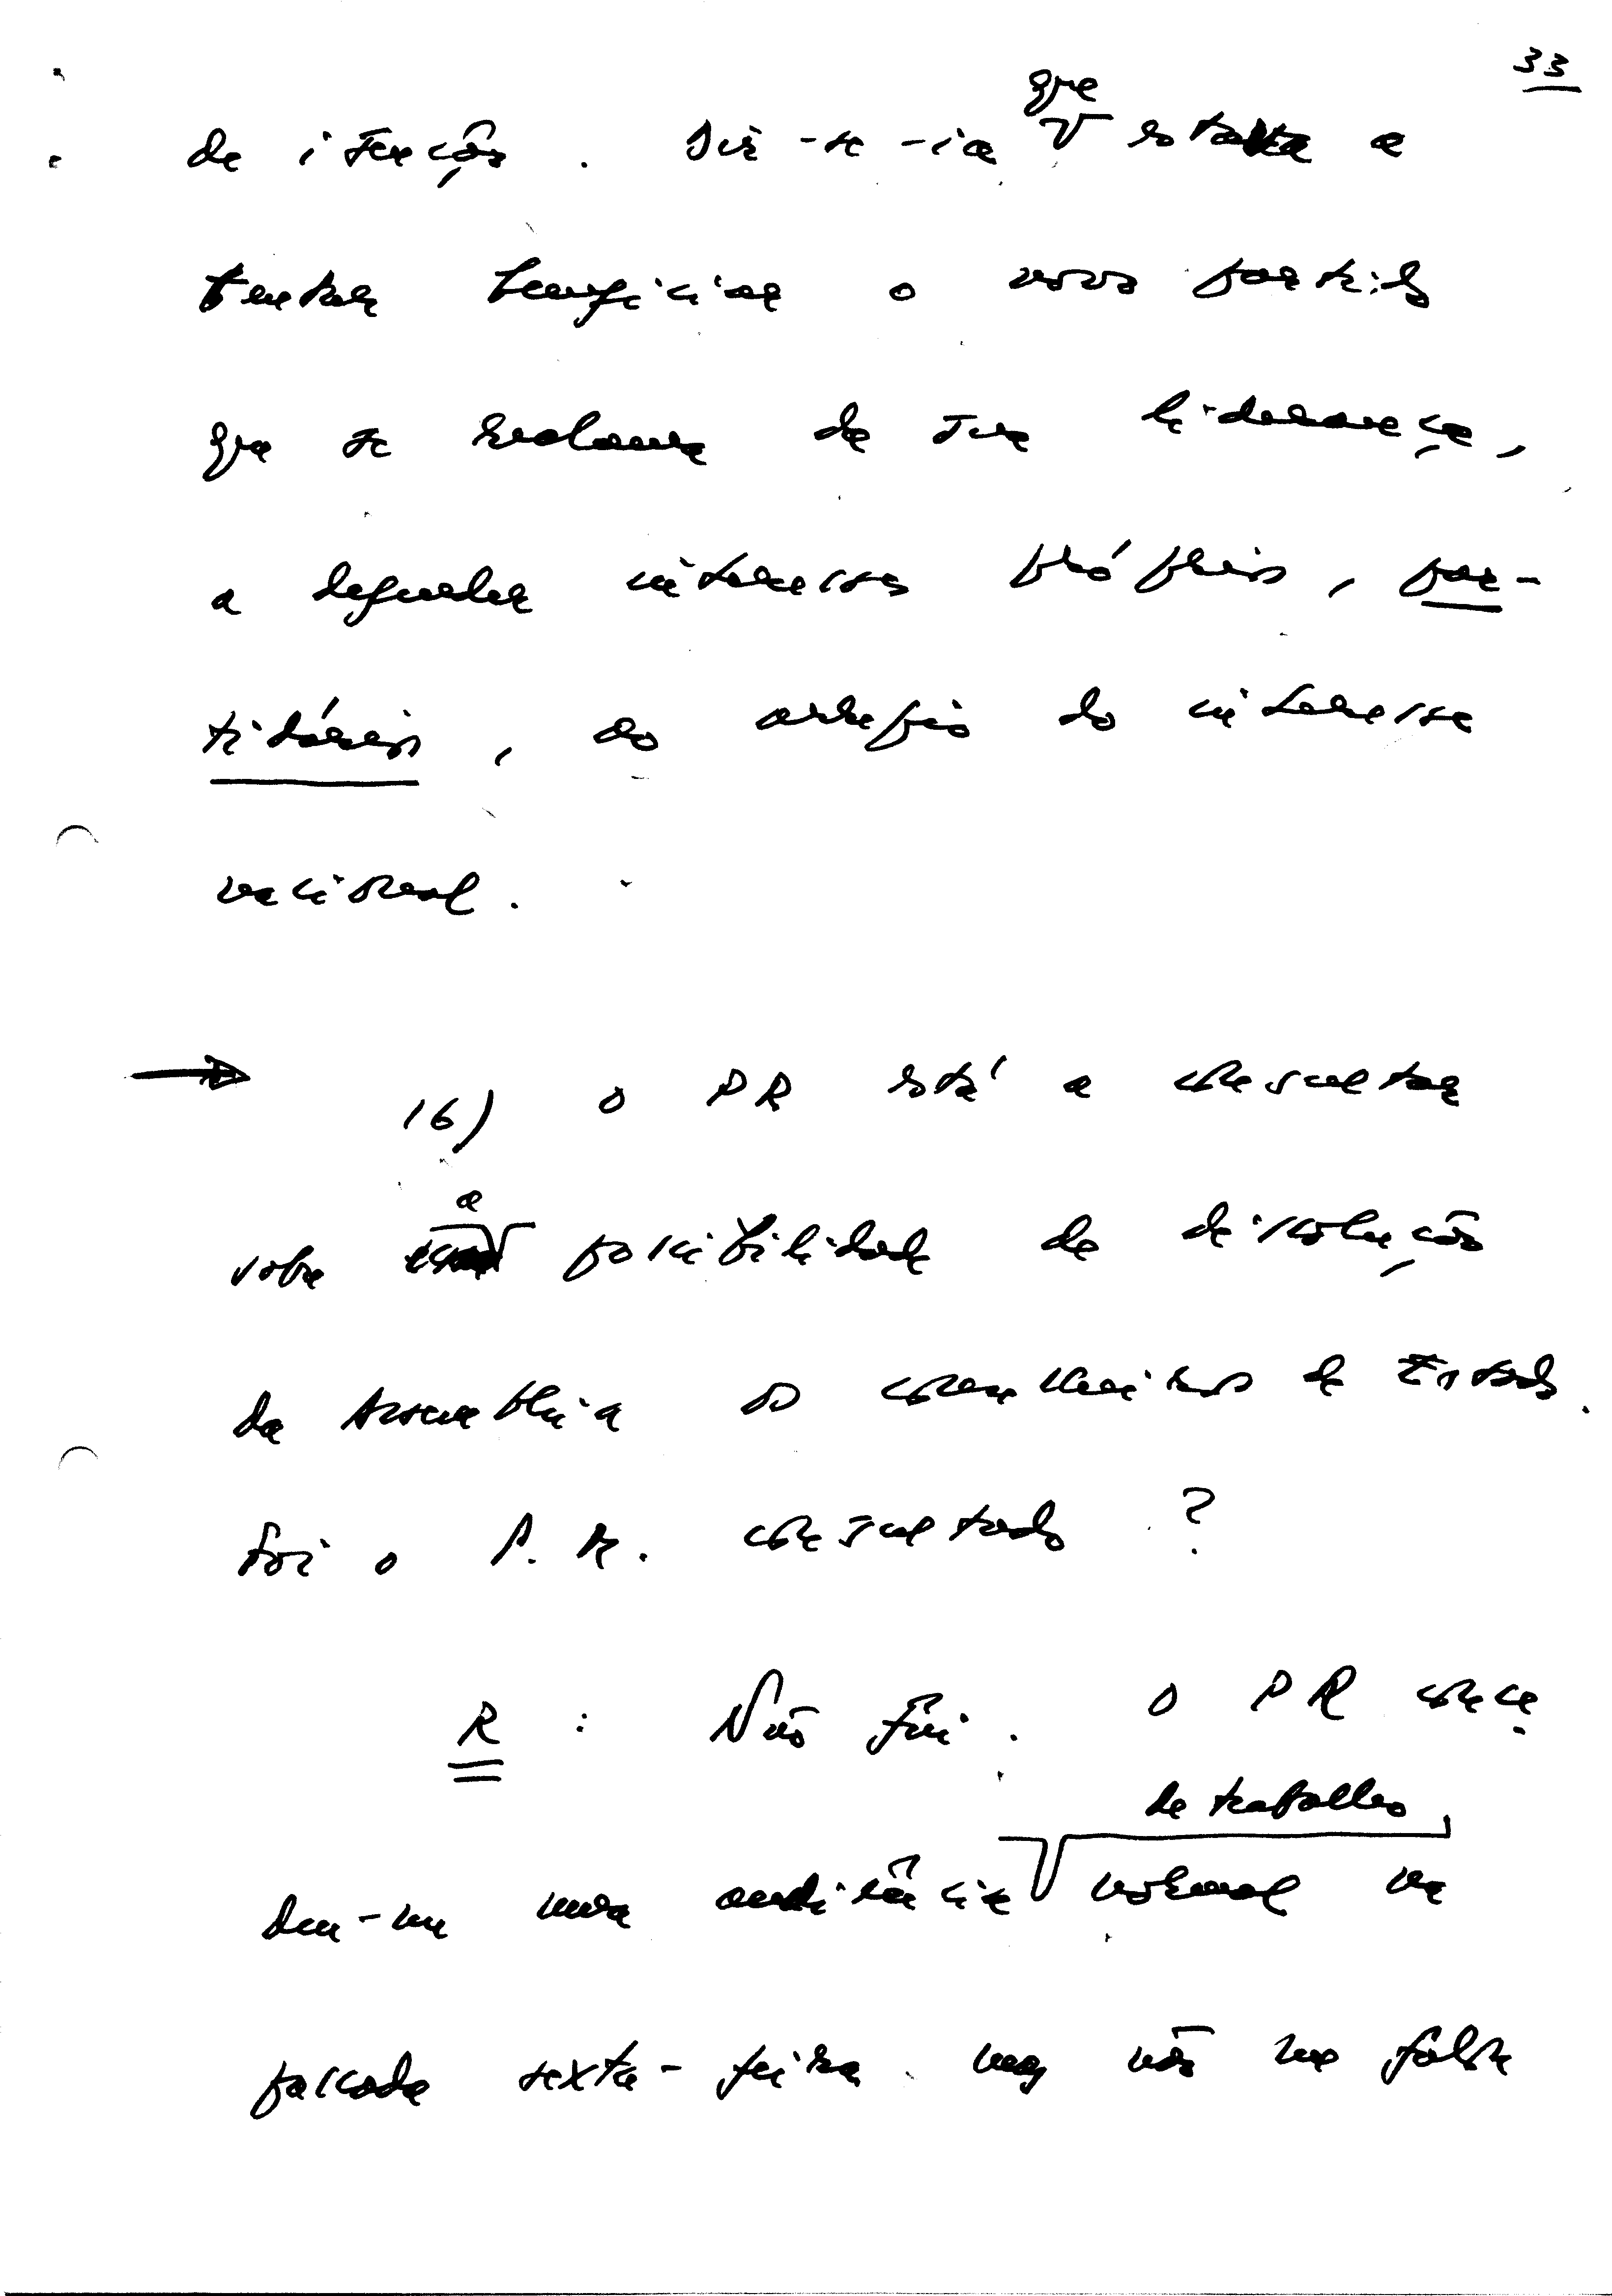 33
que
de isenção. Dir-se-ia estava a
tentar beneficiar o novo partido
que se reclama da sua liderança,
a defender interesses próprios, par-
tidários, ao arrepio do interesse
nacional.
→ 16) O PR está a consultar
a
sobre possibilidade de dissolução
da Assembleia os conselheiros de Estado.
Foi o P. M. consultado ?
R : Não fui. O PR conce
de trabalho
deu-me uma audiência normal na
passada sexta-feira mas não me falou